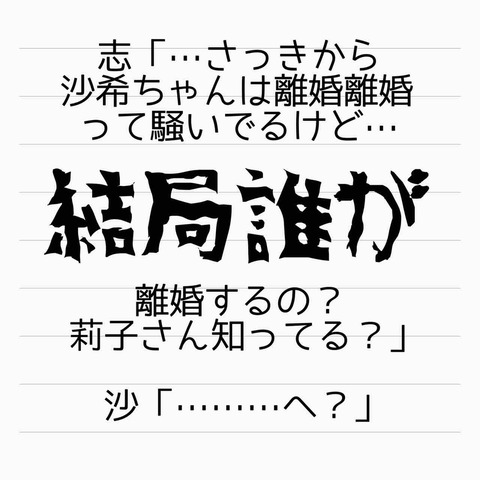 志「…さっきから
沙希ちゃんは離婚離婚
って騒いでるけど…
結局誰が
離婚するの？
莉子さん知ってる？」
沙「………へ？」